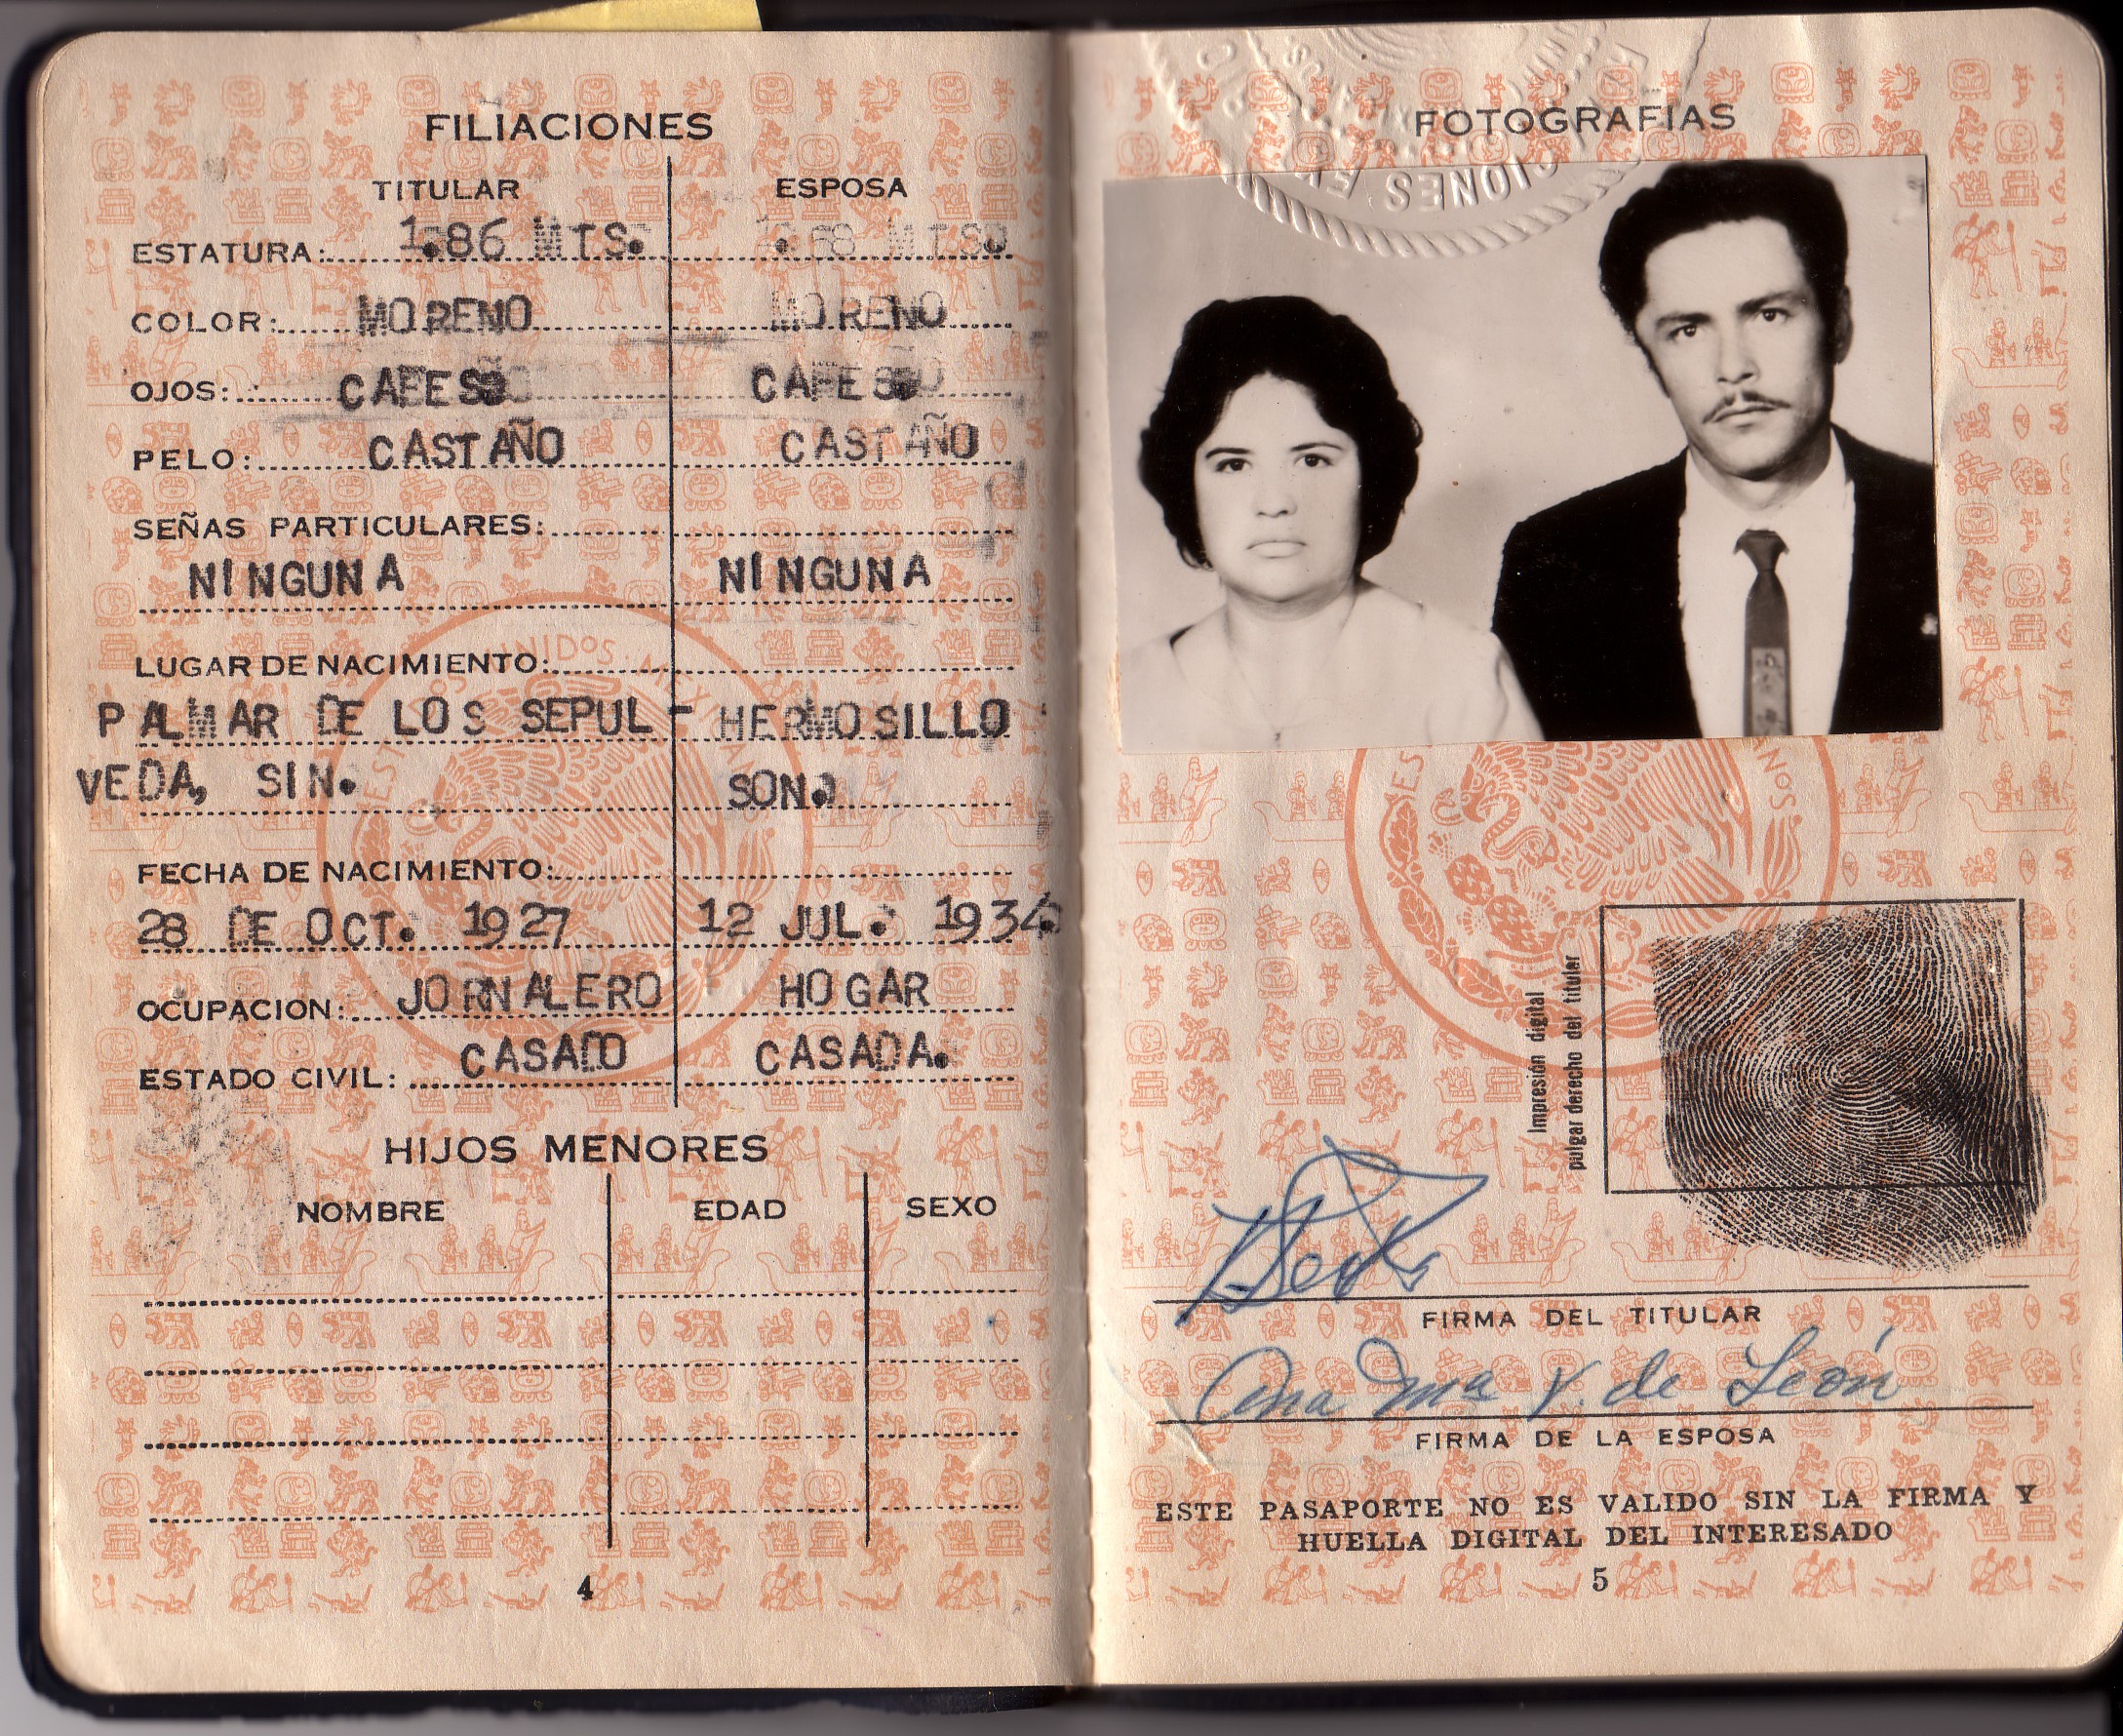 FILIACIONES
TITULAR ESPOSA
ESTATURA: 1.86 MTS. 1.68 MTS.
COLOR: MORENO MORENO
OJOS: CAFES CAFES
PELO: CASTAÑO CASTAÑO
SEÑAS PARTICULARES:
NINGUNA NINGUNA
LUGAR DE NACIMIENTO:
PALMAR DE LOS SEPUL- HERMOSILLO
VEDA, SIN. SON.
FECHA DE NACIMIENTO:
28 DE OCT. 1927 12 JUL. 1934.
OCUPACION: JORNALERO HOGAR
ESTADO CIVIL: CASADO CASADA.
HIJOS MENORES
NOMBRE EDAD SEXO
4
FOTOGRAFIAS
Impresión digital
pulgar derecho del titular
FIRMA DEL TITULAR
Ana Ma V. de León
FIRMA DE LA ESPOSA
ESTE PASAPORTE NO ES VALIDO SIN LA FIRMA Y
HUELLA DIGITAL DEL INTERESADO
5